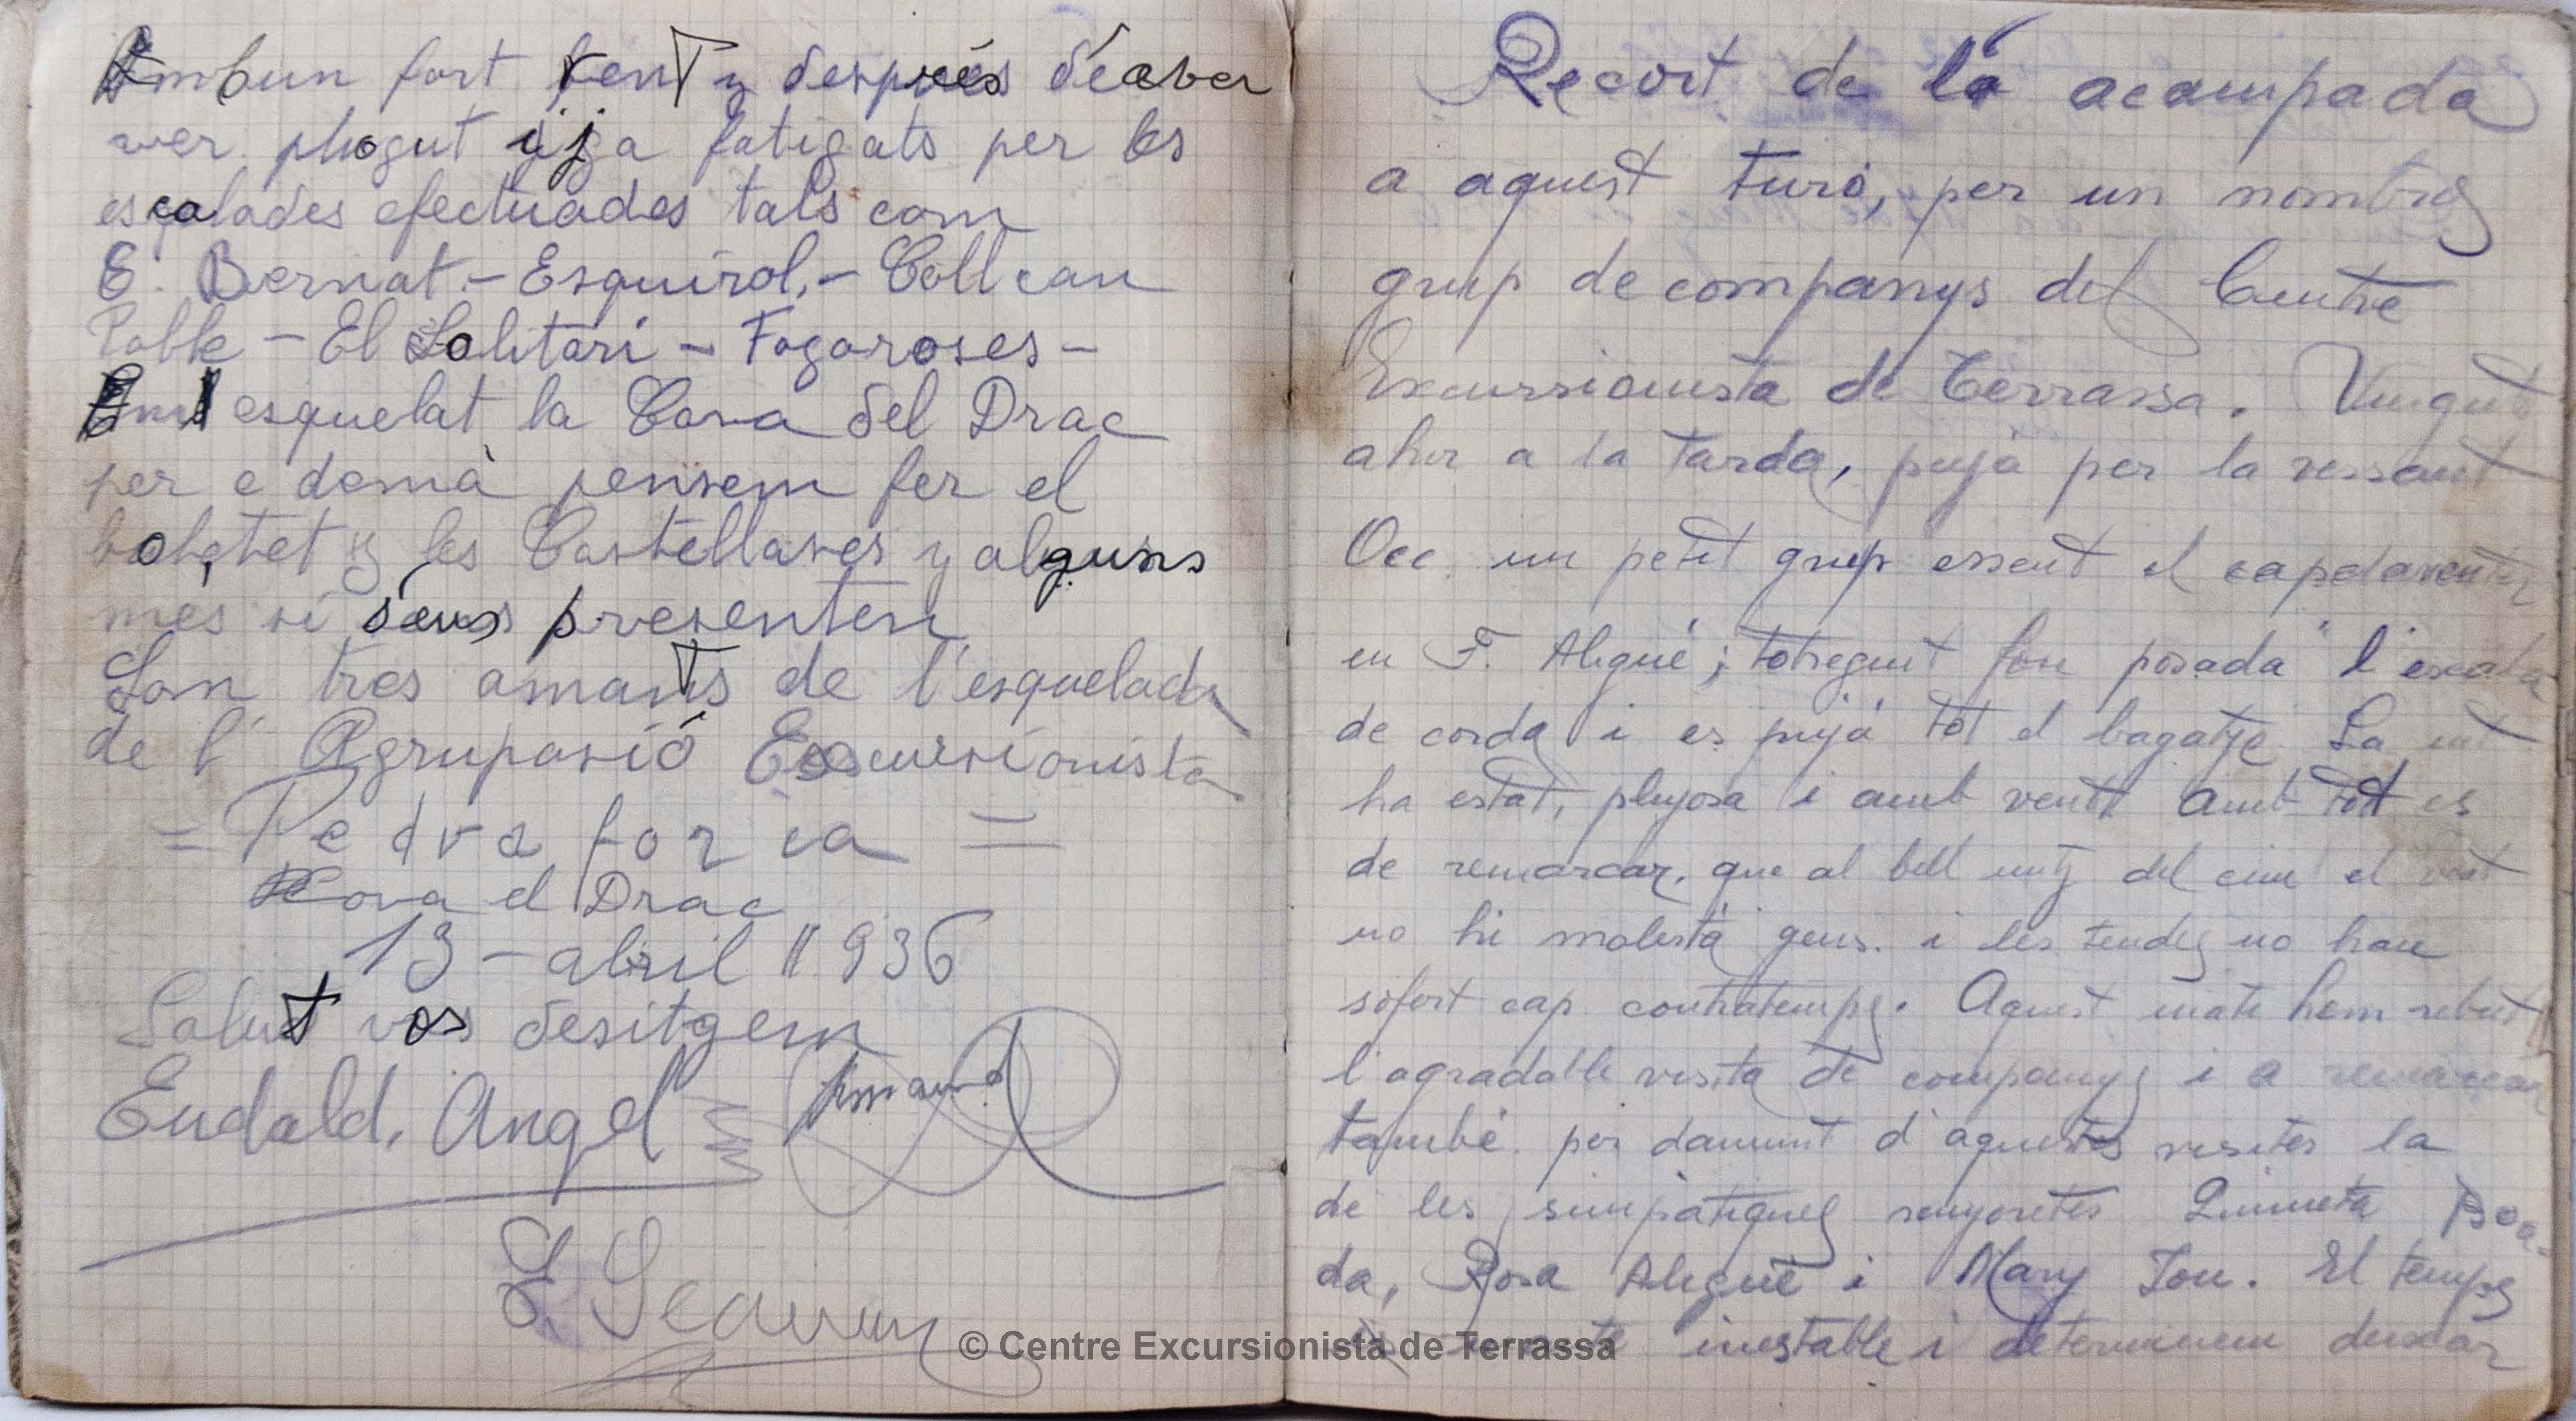 Ambun fort vent y després de aver
ver plogut i ja fatigats per les
escalades efectuades tals com
E. Bernat - Esquirol, - Coll can
Poble - El Solitari - Fogaroses -
esquelat la Cova del Drac
per e demà pensem fer el
y les Castellases y alguns
mes si seus presenten
Son tres amants de l'esquelada
de l'Agrupasió Escursionista
= Pedraforca =
Cova el Drac
13 - abril 1936
Salut vos desitgem
Eudald, Angel Amand
Recort de la acampada
a aquest turó, per un nombrós
grup de companys del Centre
Excursionista de Terrassa. Vingut
ahir a la tarda, pujà per la vessant
Occ. un petit grup essent el capdaventer
en F. Aligué; totseguit fou posada l'escala
de corda i es pujà tot el bagatje La nit
ha estat, plujosa i amb vent amb tot es
de remarcar, que al bell mitj del cim el vent
no hi molestà gens. i les tendes no han
sofert cap contratemps. Aquest matí hem rebut
l'agradable visita de companys i a remarcar
també per damunt d'aquestes visites la
de les simpàtiques senyoretes Quimeta Boa-
da, Rosa Aligué i Mary Jou. El temps
inestable i determinem deixar
© Centre Excursionista de Terrassa